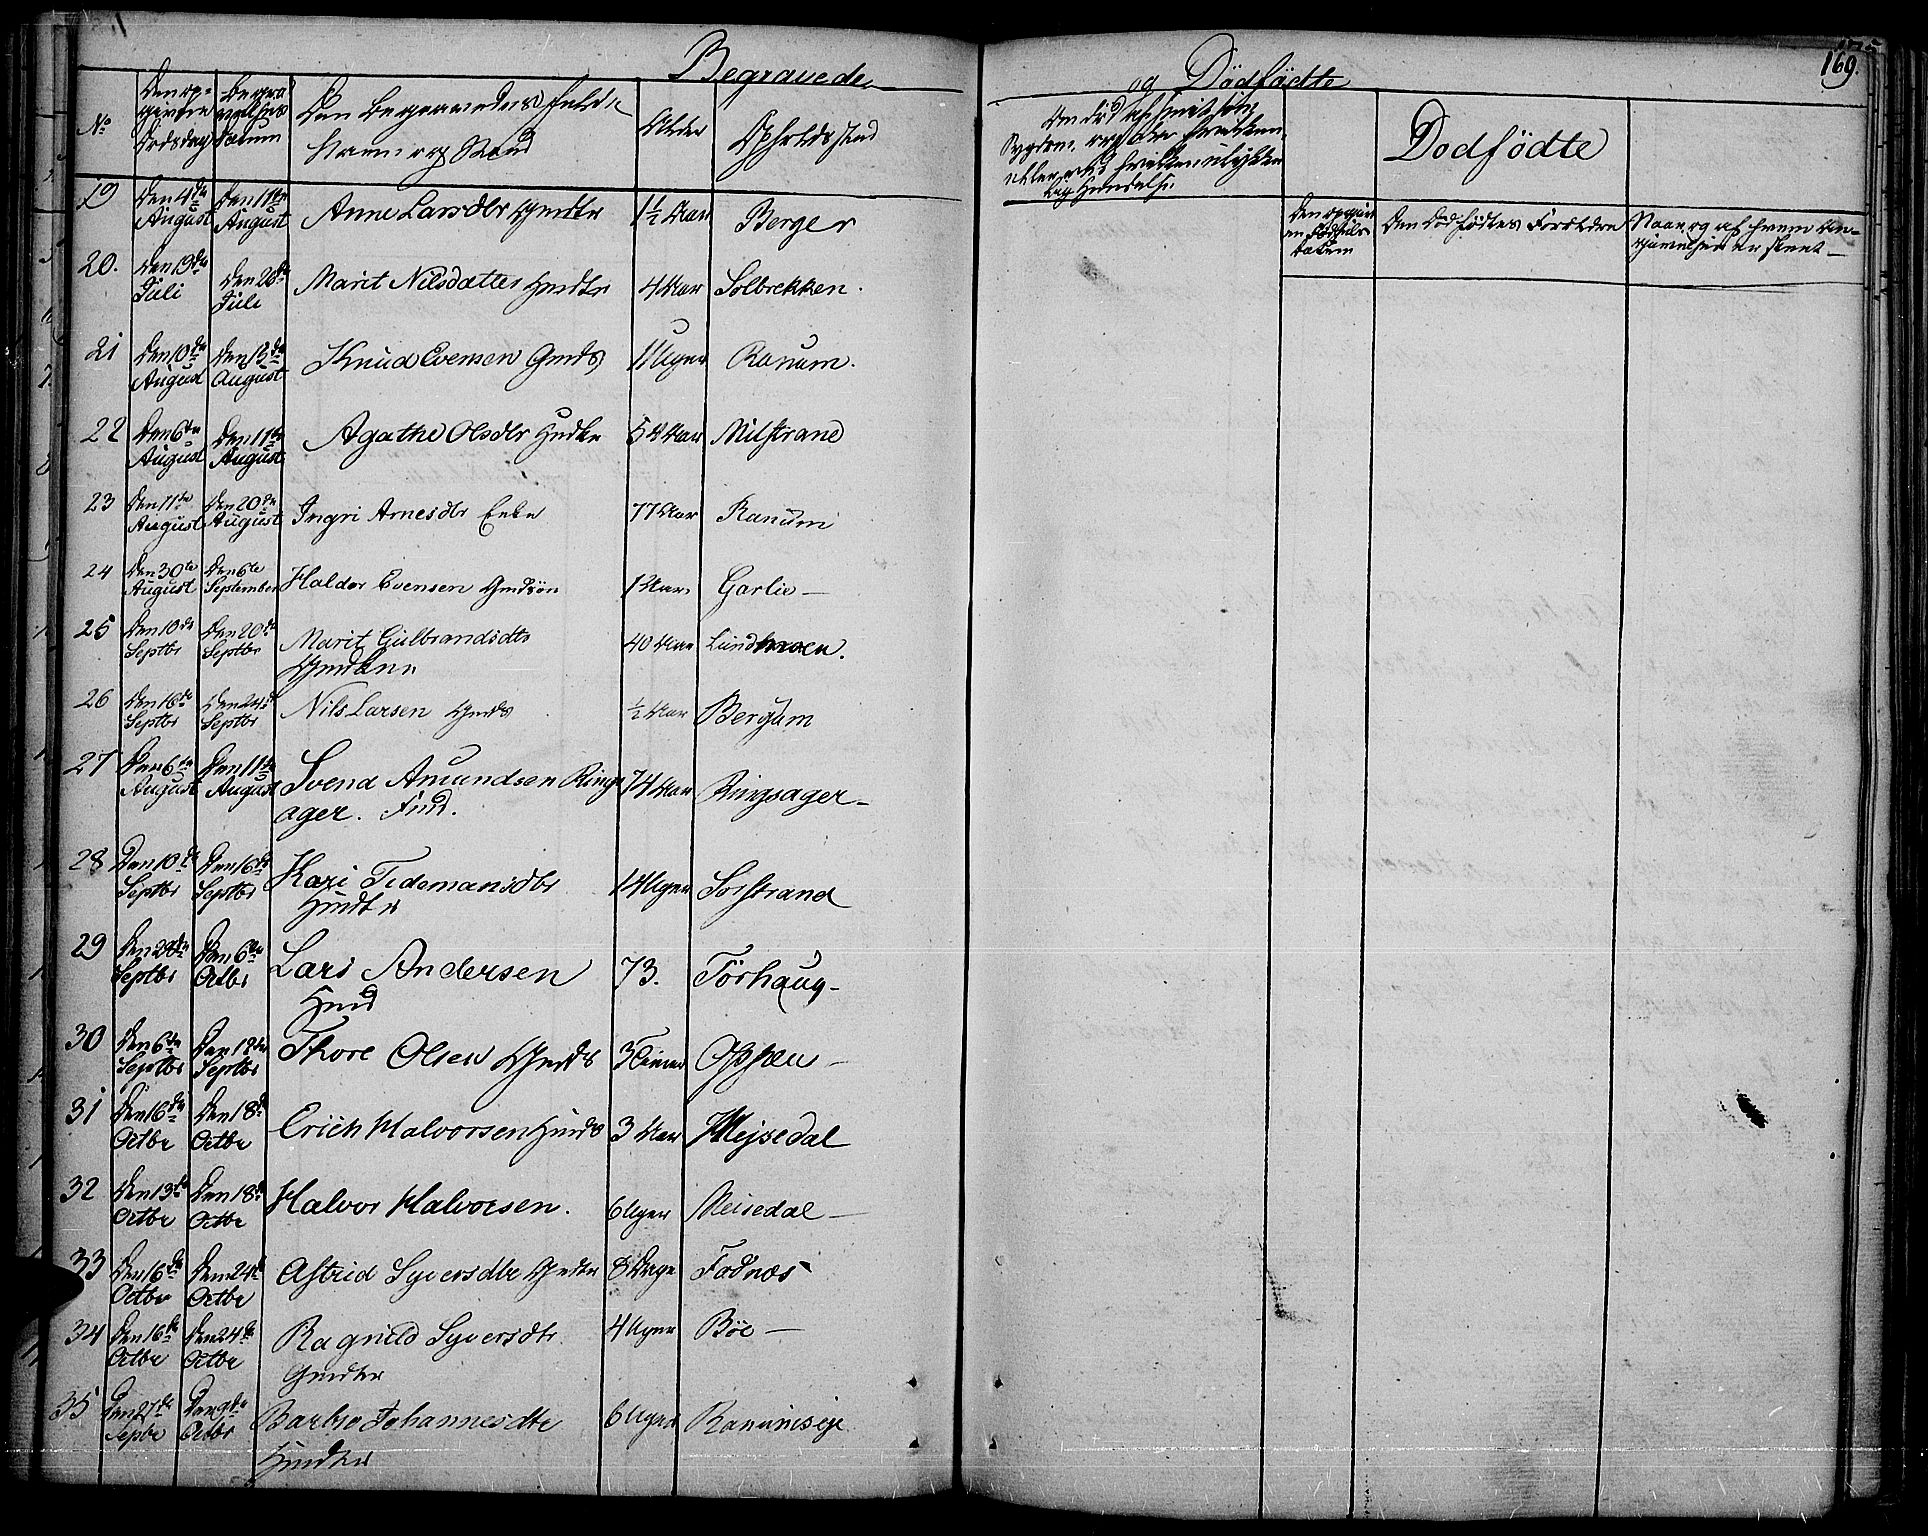 Begravede og Dödfödte
169.
No
Den op-
givene
Dödsdag
Begra
velses
Datum
Den Begravedes fulde
Navn og Stand
Alder
Opholdssted
Döden
Sygdom
Hendelse
Dodfödte
Den opgivne
Födsels
Datum
Den Dödfödtes Foreldre
Naar og af hvem An-
givelsen er skeet
19 Den 4de August Den 11te August Anne Larsdtr Gmdtr 1½ Aar Berge
20. Den 19de Juli Den 26de Juli Marit Nilsdatter Hmdtr 4 Aar Solbrekken.
21 Den 10de August Den 13de August Knud Evensen Gmds 11 Uger Ranum.
22 Den 6te August Den 11te August Agathe Olsdtr Hmdtr Aar Nilstrand
23 Den 11te August Den 20de August Ingri Arnesdtr Enke 77 Aar Ranum
24 Den 30te August Den 6te September Haldor Evensen Gmdsön 1 Aar Garlie
25 Den 10de Septbr Den 20de Septbr Marit Gulbrandsdtr
Gmdkone 40 Aar Lundmoen.
26 Den 16de Septbr Den 24de Septbr Nils Larsen Gmds ½ Aar Bergum
27 Den 6te August Den 11te August Svend Amundsen Rings
ager. Find. 74 Aar Ringsager
28 Den 10de Septbr Den 16de Septbr Kari Tidemansdtr
Hmdtr 14 Uger Sorstrand
29 Den 29de Septbr Den 6te Octbr Lars Andersen
Hmd 73. Törhaug
30 Den 6te Septbr Den 19de Septbr Thore Olsen Gmds 3 Timer Opsæu
31 Den 16de Octbr Den 18de Octbr Erich Halvorsen Hmds 3 Aar Mejsedal
32 Den 13de Octbr Den 18de Octbr Halvor Halvorsen. 6 Uger Meisedal
33 Den 16de Octbr Den 24de Octbr Astrid Syversdtr Gmdtr 8 Dage Fodnæs
34 Den 16de Octbr Den 24de Octbr Ragnild Syversdtr
Gmdtr 4 Uger Böe
35 Den 27de Septbr Den 9de Octbr Barbro Johannesdtr
Hmdtr 6 Uger Ranumseje